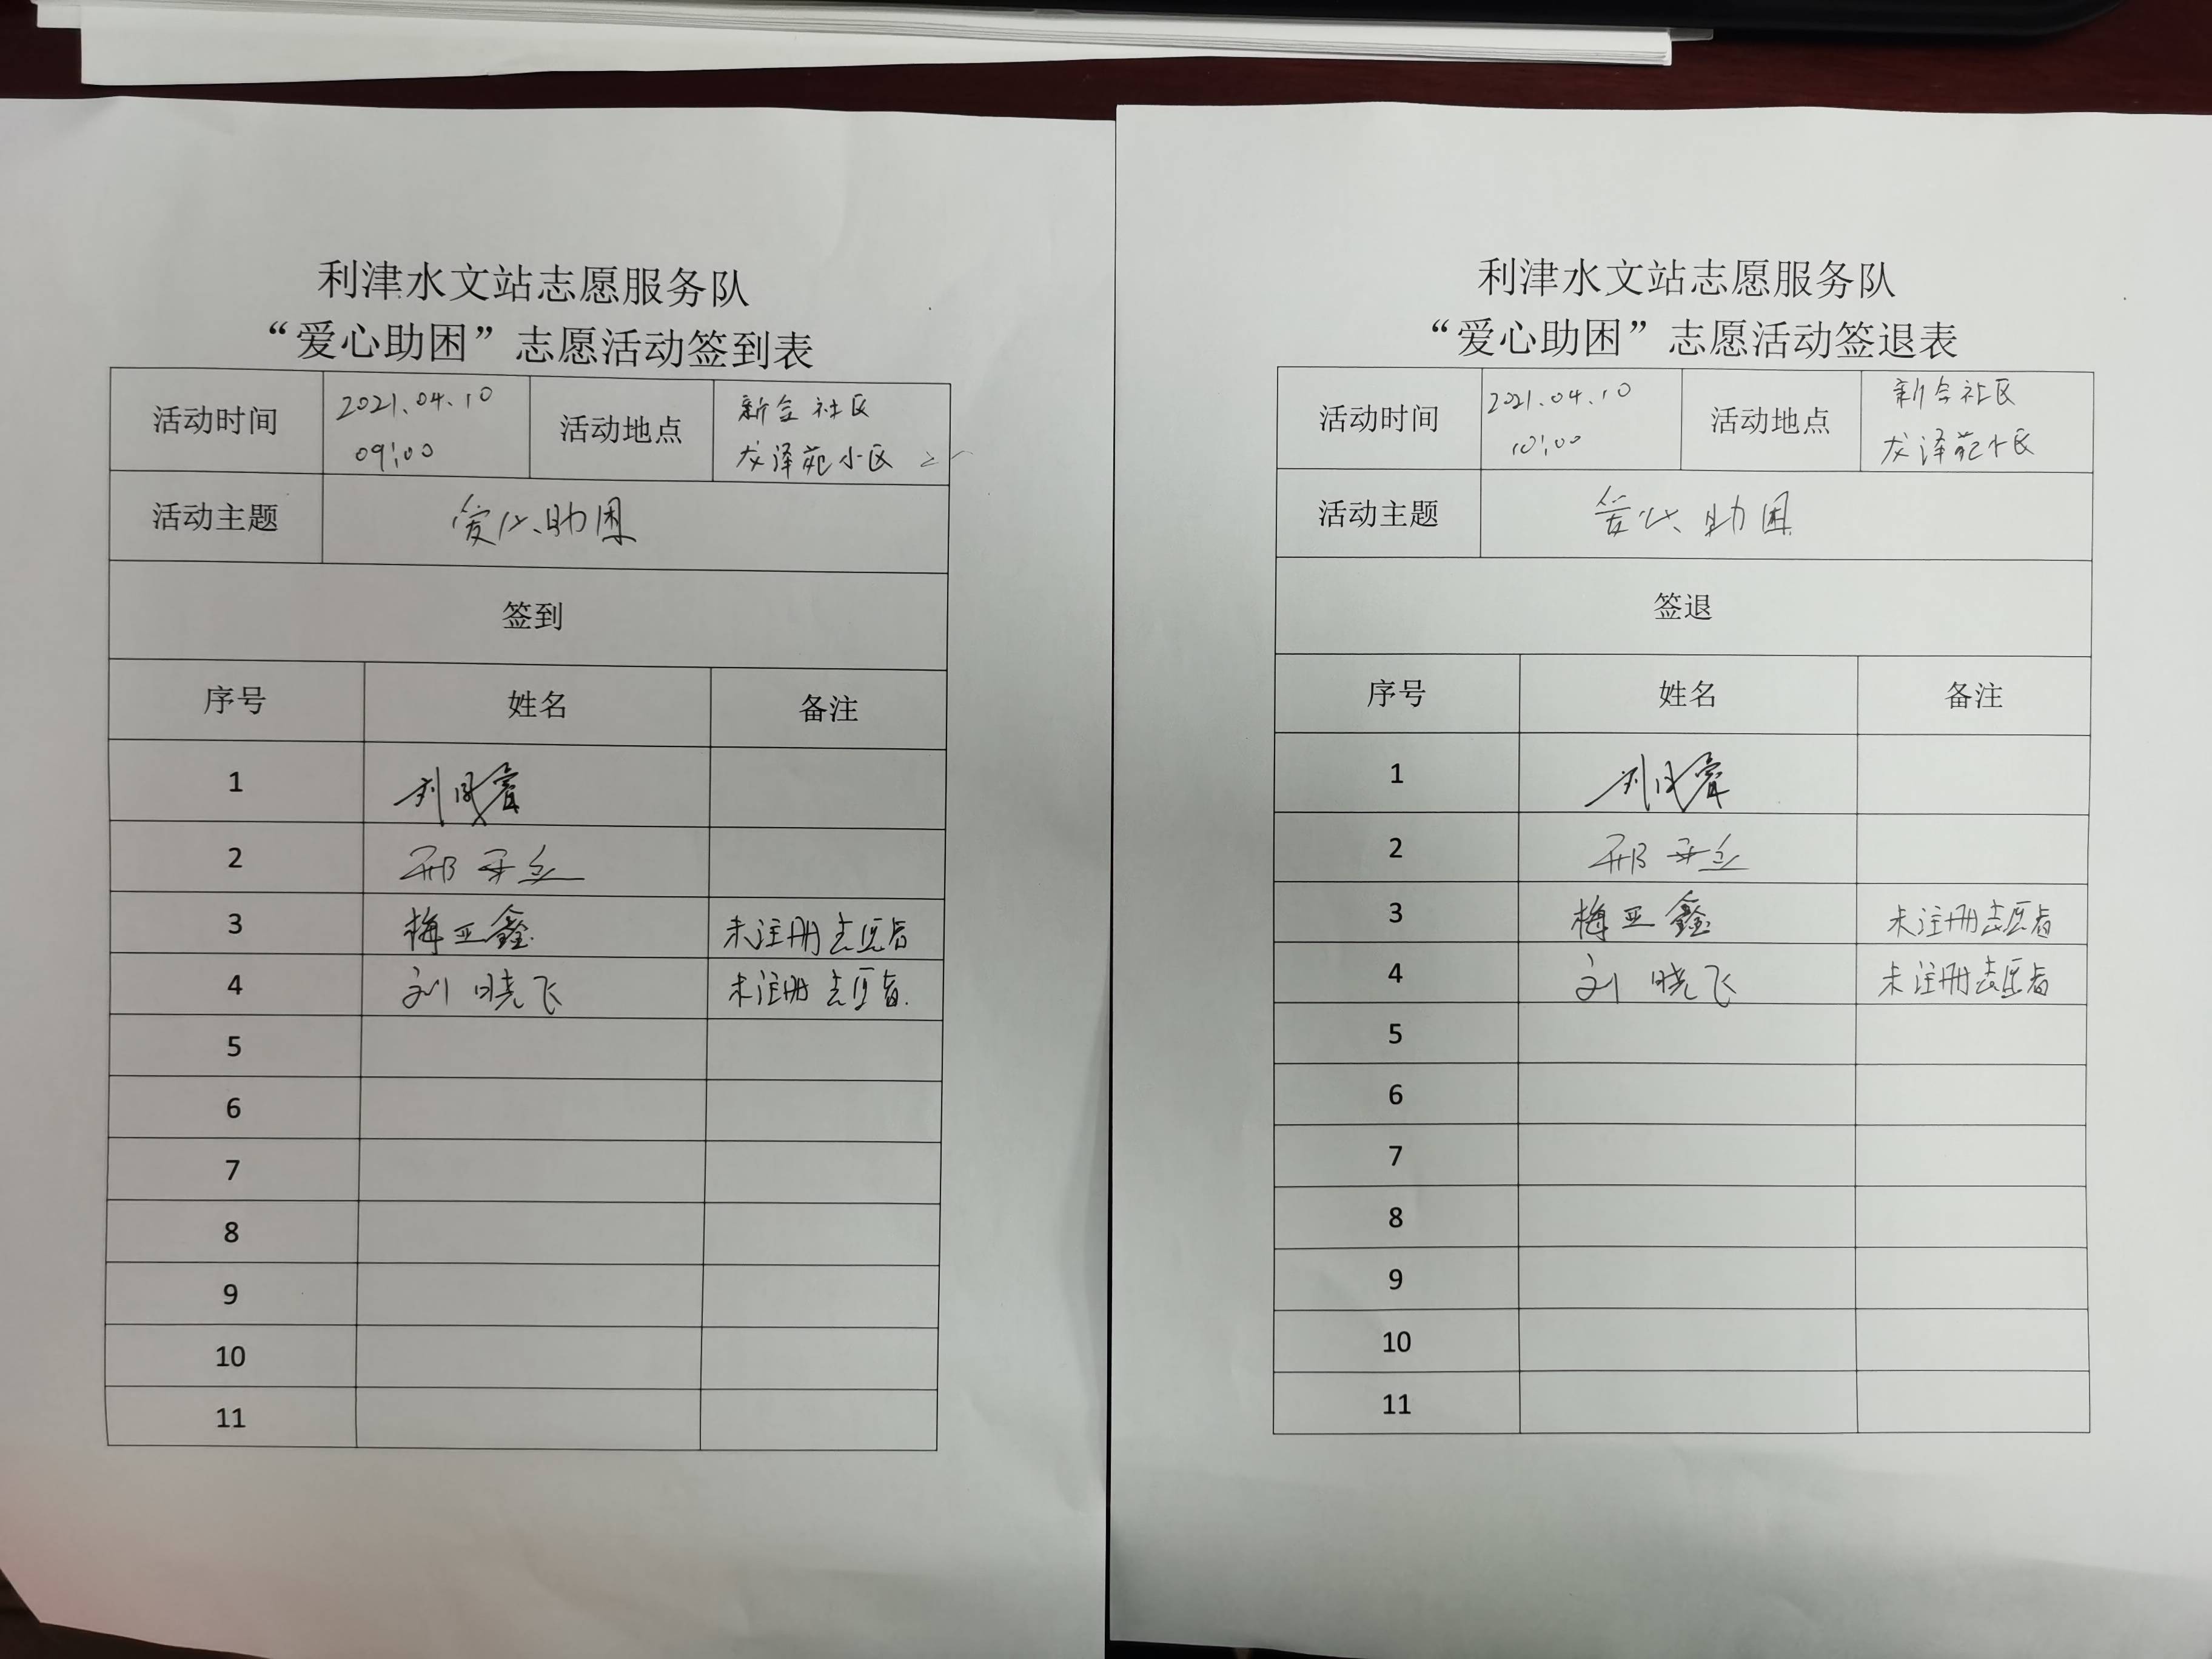 利津水文站志愿服务队
“爱心助困”志愿活动签到表
活动时间
2021.04.10
09:00
活动地点
新合社区
龙泽苑小区
活动主题
爱心助困
签到
序号 姓名 备注
1
2 邢
3 梅亚鑫 未注册志愿者
4 刘晓飞 未注册志愿者.
5
6
7
8
9
10
11
利津水文站志愿服务队
“爱心助困”志愿活动签退表
活动时间
2021.04.10
10:00
活动地点
新合社区
龙泽苑小区
活动主题
爱心助困
签退
序号 姓名 备注
1
2 邢
3 梅亚鑫 未注册志愿者
4 刘晓飞 未注册志愿者
5
6
7
8
9
10
11